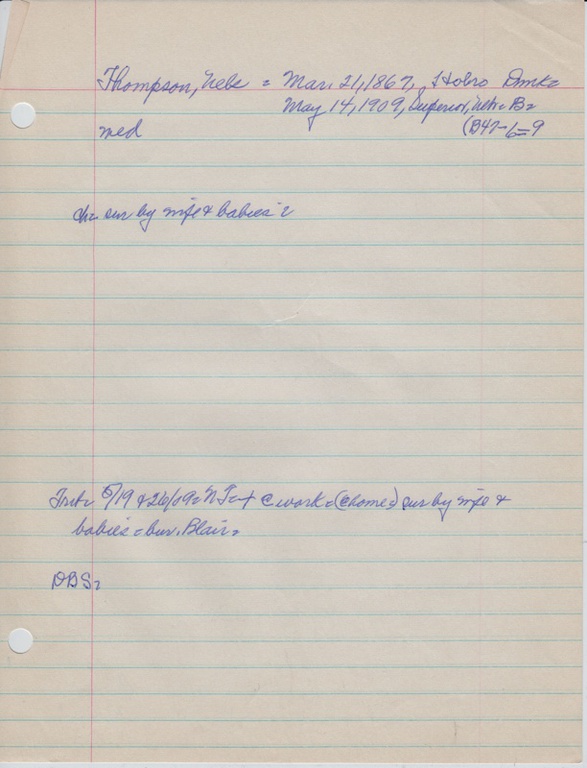 Thompson, Nels = Mar. 21, 1867, Hobro Dmk=
May 14, 1909, Superior, Neb= B=
med (B47-6=9
ch= sur by wife & babies =
Trib= 5/19 & 26/09= N T=+ @ work = (@ home=) sur by wife &
babies = bur. Blair=
DBS=